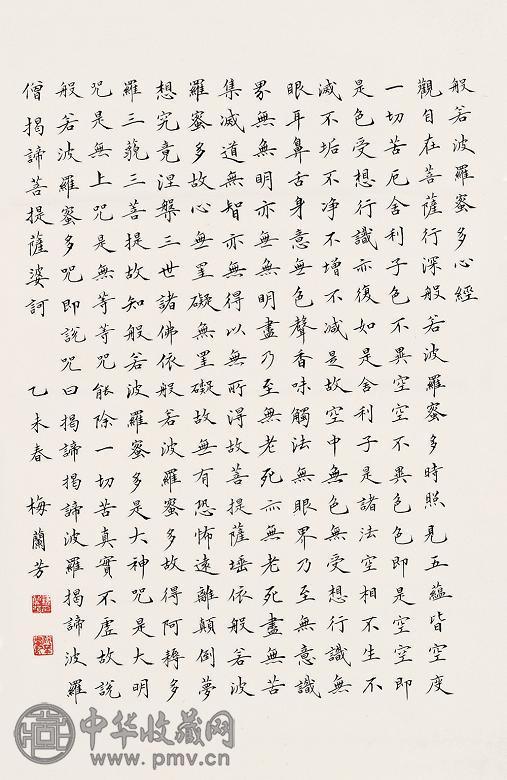 般若波羅蜜多心經
觀自在菩薩行深般若波羅蜜多時照見五蘊皆空度
一切苦厄舍利子色不異空空不異色色即是空空即
是色受想行識亦復如是舍利子是諸法空相不生不
滅不垢不净不增不减是故空中無色無受想行識無
眼耳鼻舌身意無色聲香味觸法無眼界乃至無意識
界無無明亦無無明盡乃至無老死亦無老死盡無苦
集滅道無智亦無得以無所得故菩提薩埵依般若波
羅蜜多故心無罣礙無罣礙故無有恐怖遠離顛倒夢
想究竟涅槃三世諸佛依般若波羅蜜多故得阿耨多
羅三藐三菩提故知般若波羅蜜多是大神咒是大明
咒是無上咒是無等等咒能除一切苦真實不虛故說
般若波羅蜜多咒即說咒曰揭諦揭諦波羅揭諦波羅
僧揭諦菩提薩婆訶
乙未春 梅蘭芳
中华收藏网
www.pmv.cn